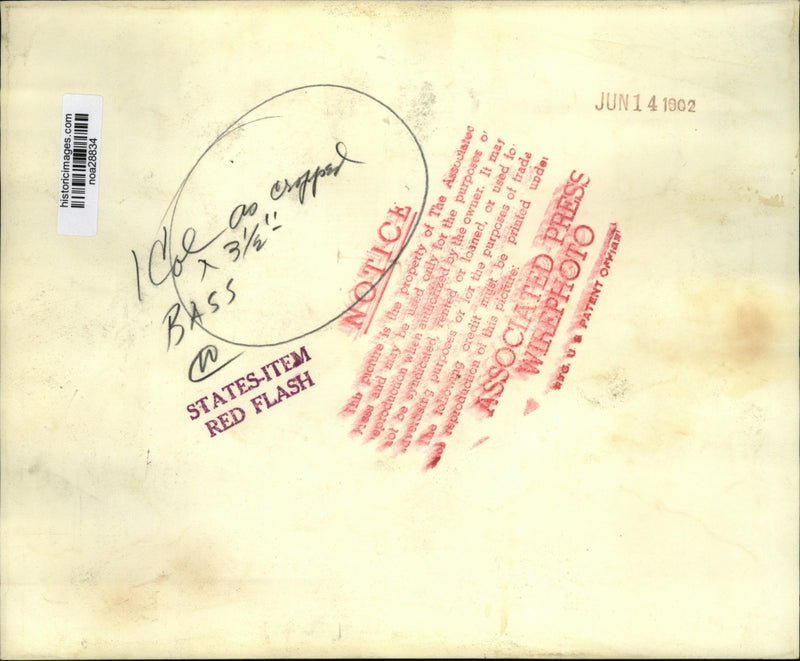 JUN 14 1902
historicimages.com
noa28834
1 Col as cropped
x 3½"
BASS
STATES-ITEM
RED FLASH
NOTICE
This picture is the property of The Associated
Press and may be used only for the purposes of
reproduction when authorized by the owner. It may
not be syndicated, rented or loaned, or used for
advertising purposes or for the purposes of trade
The following credit must be printed under
and reproduction of this picture:
ASSOCIATED PRESS
WIREPHOTO
REG. U S PATENT OFFICE